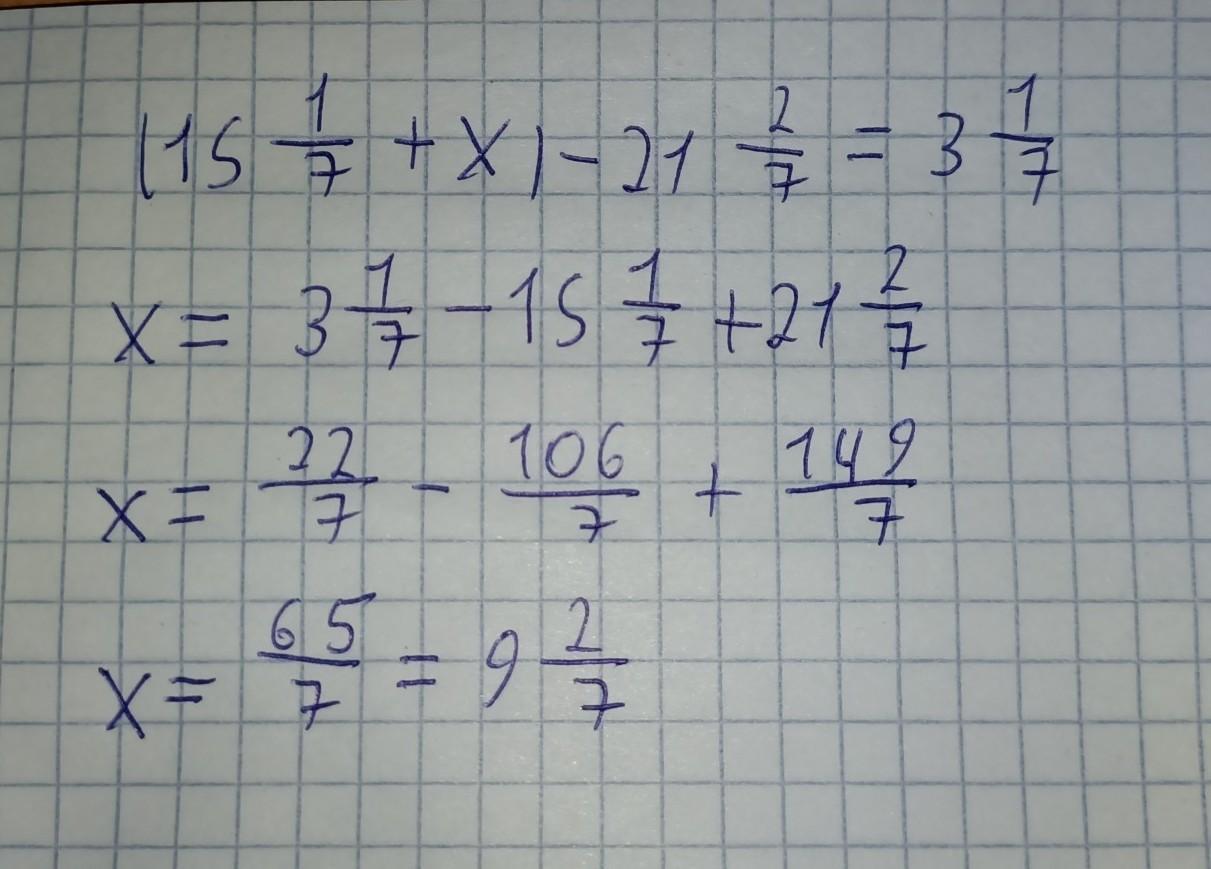 (15 1/7 + x) - 21 2/7 = 3 1/7
x = 3 1/7 - 15 1/7 + 21 2/7
x = 22/7 - 106/7 + 149/7
x = 65/7 = 9 2/7